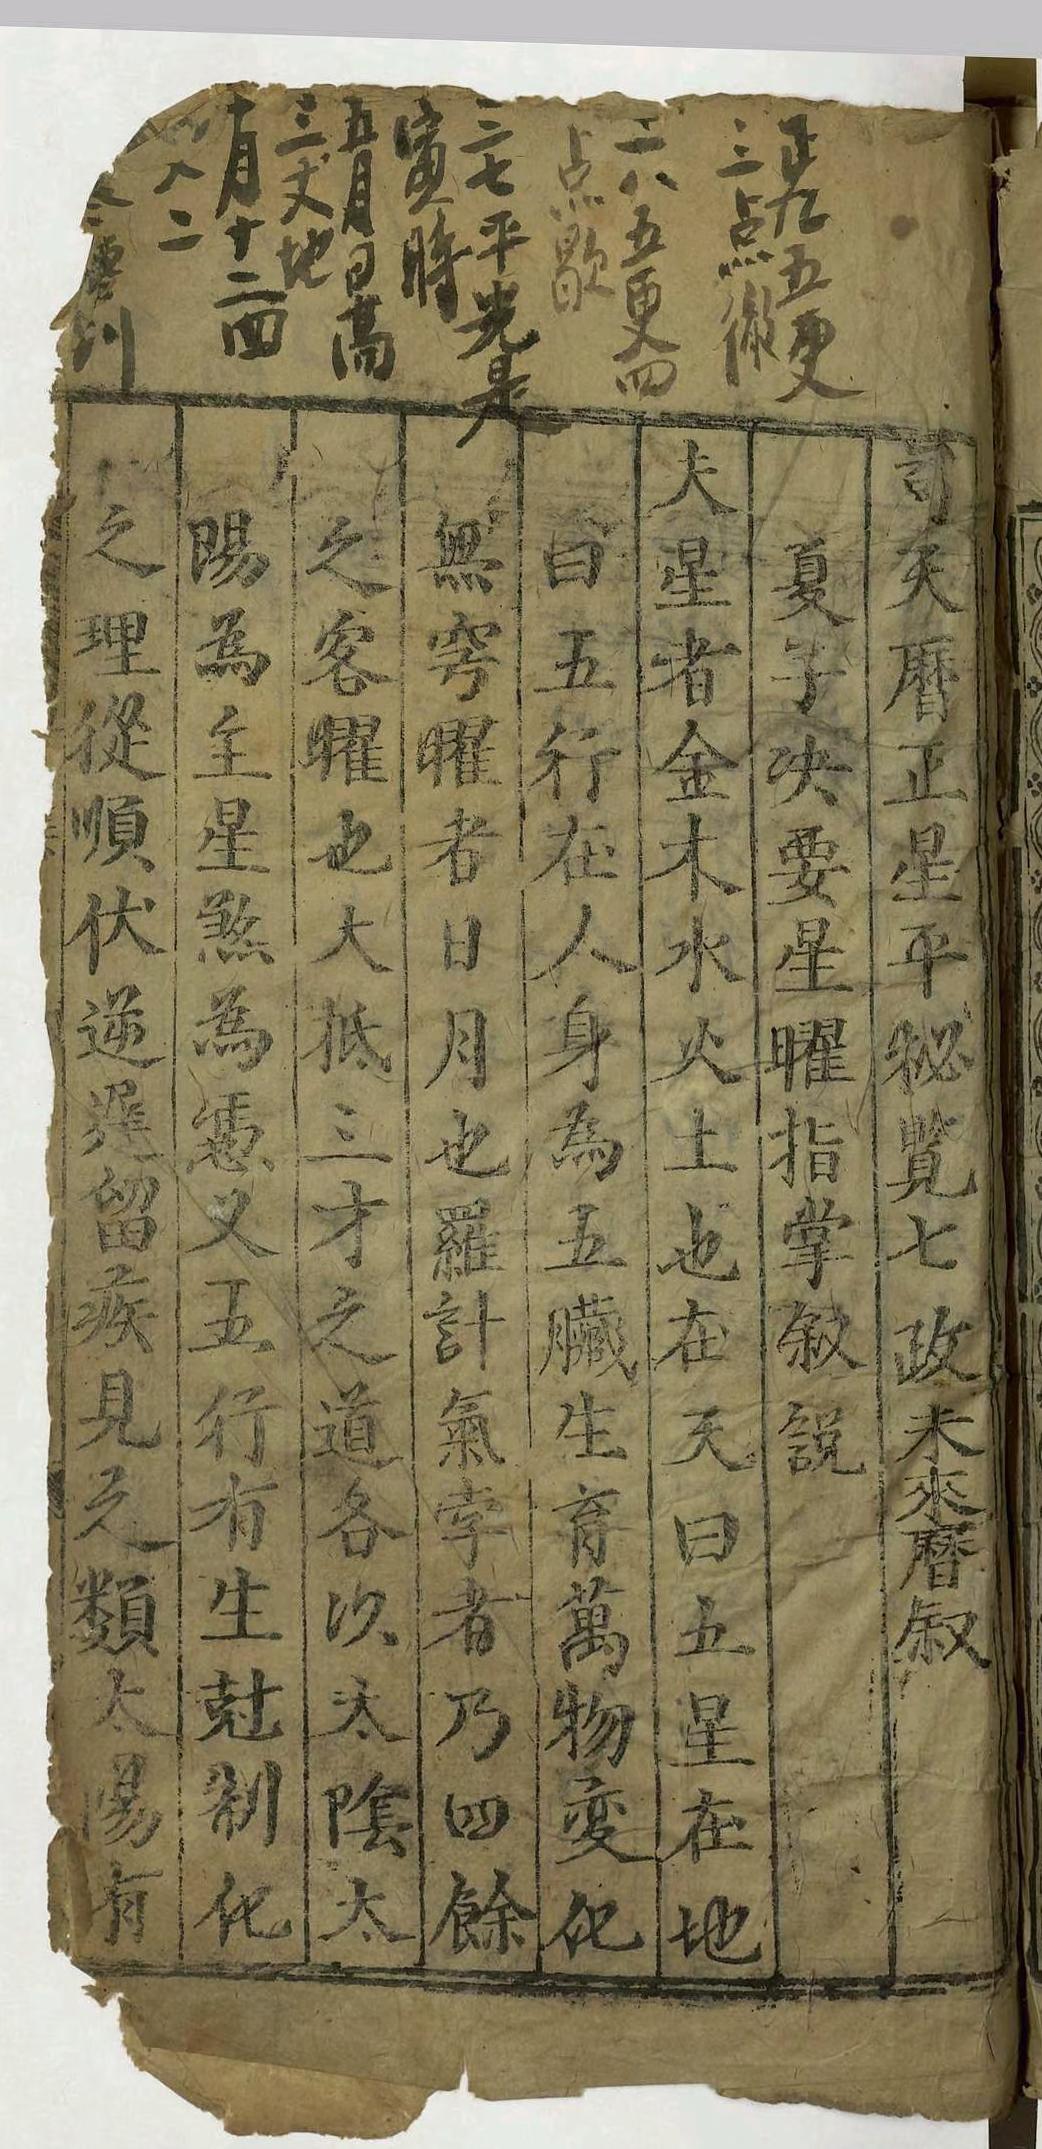 正九五更
三点徹
二八五更四
点歇
三七平光是
寅時
五月日高
三丈地
十月十二四
八二
司天曆正星平秘覧七政未來曆叙
夏子决要星曜指掌叙說
夫星者金木水火土也在天曰五星在地
曰五行在人身為五臟生育萬物変化
無窮曜者日月也羅計氣孛者乃四餘
之客曜也大抵三才之道各以太陰太
陽為主星煞為憑又五行有生尅制化
之理從順伏逆遲留疾見之類太陽有